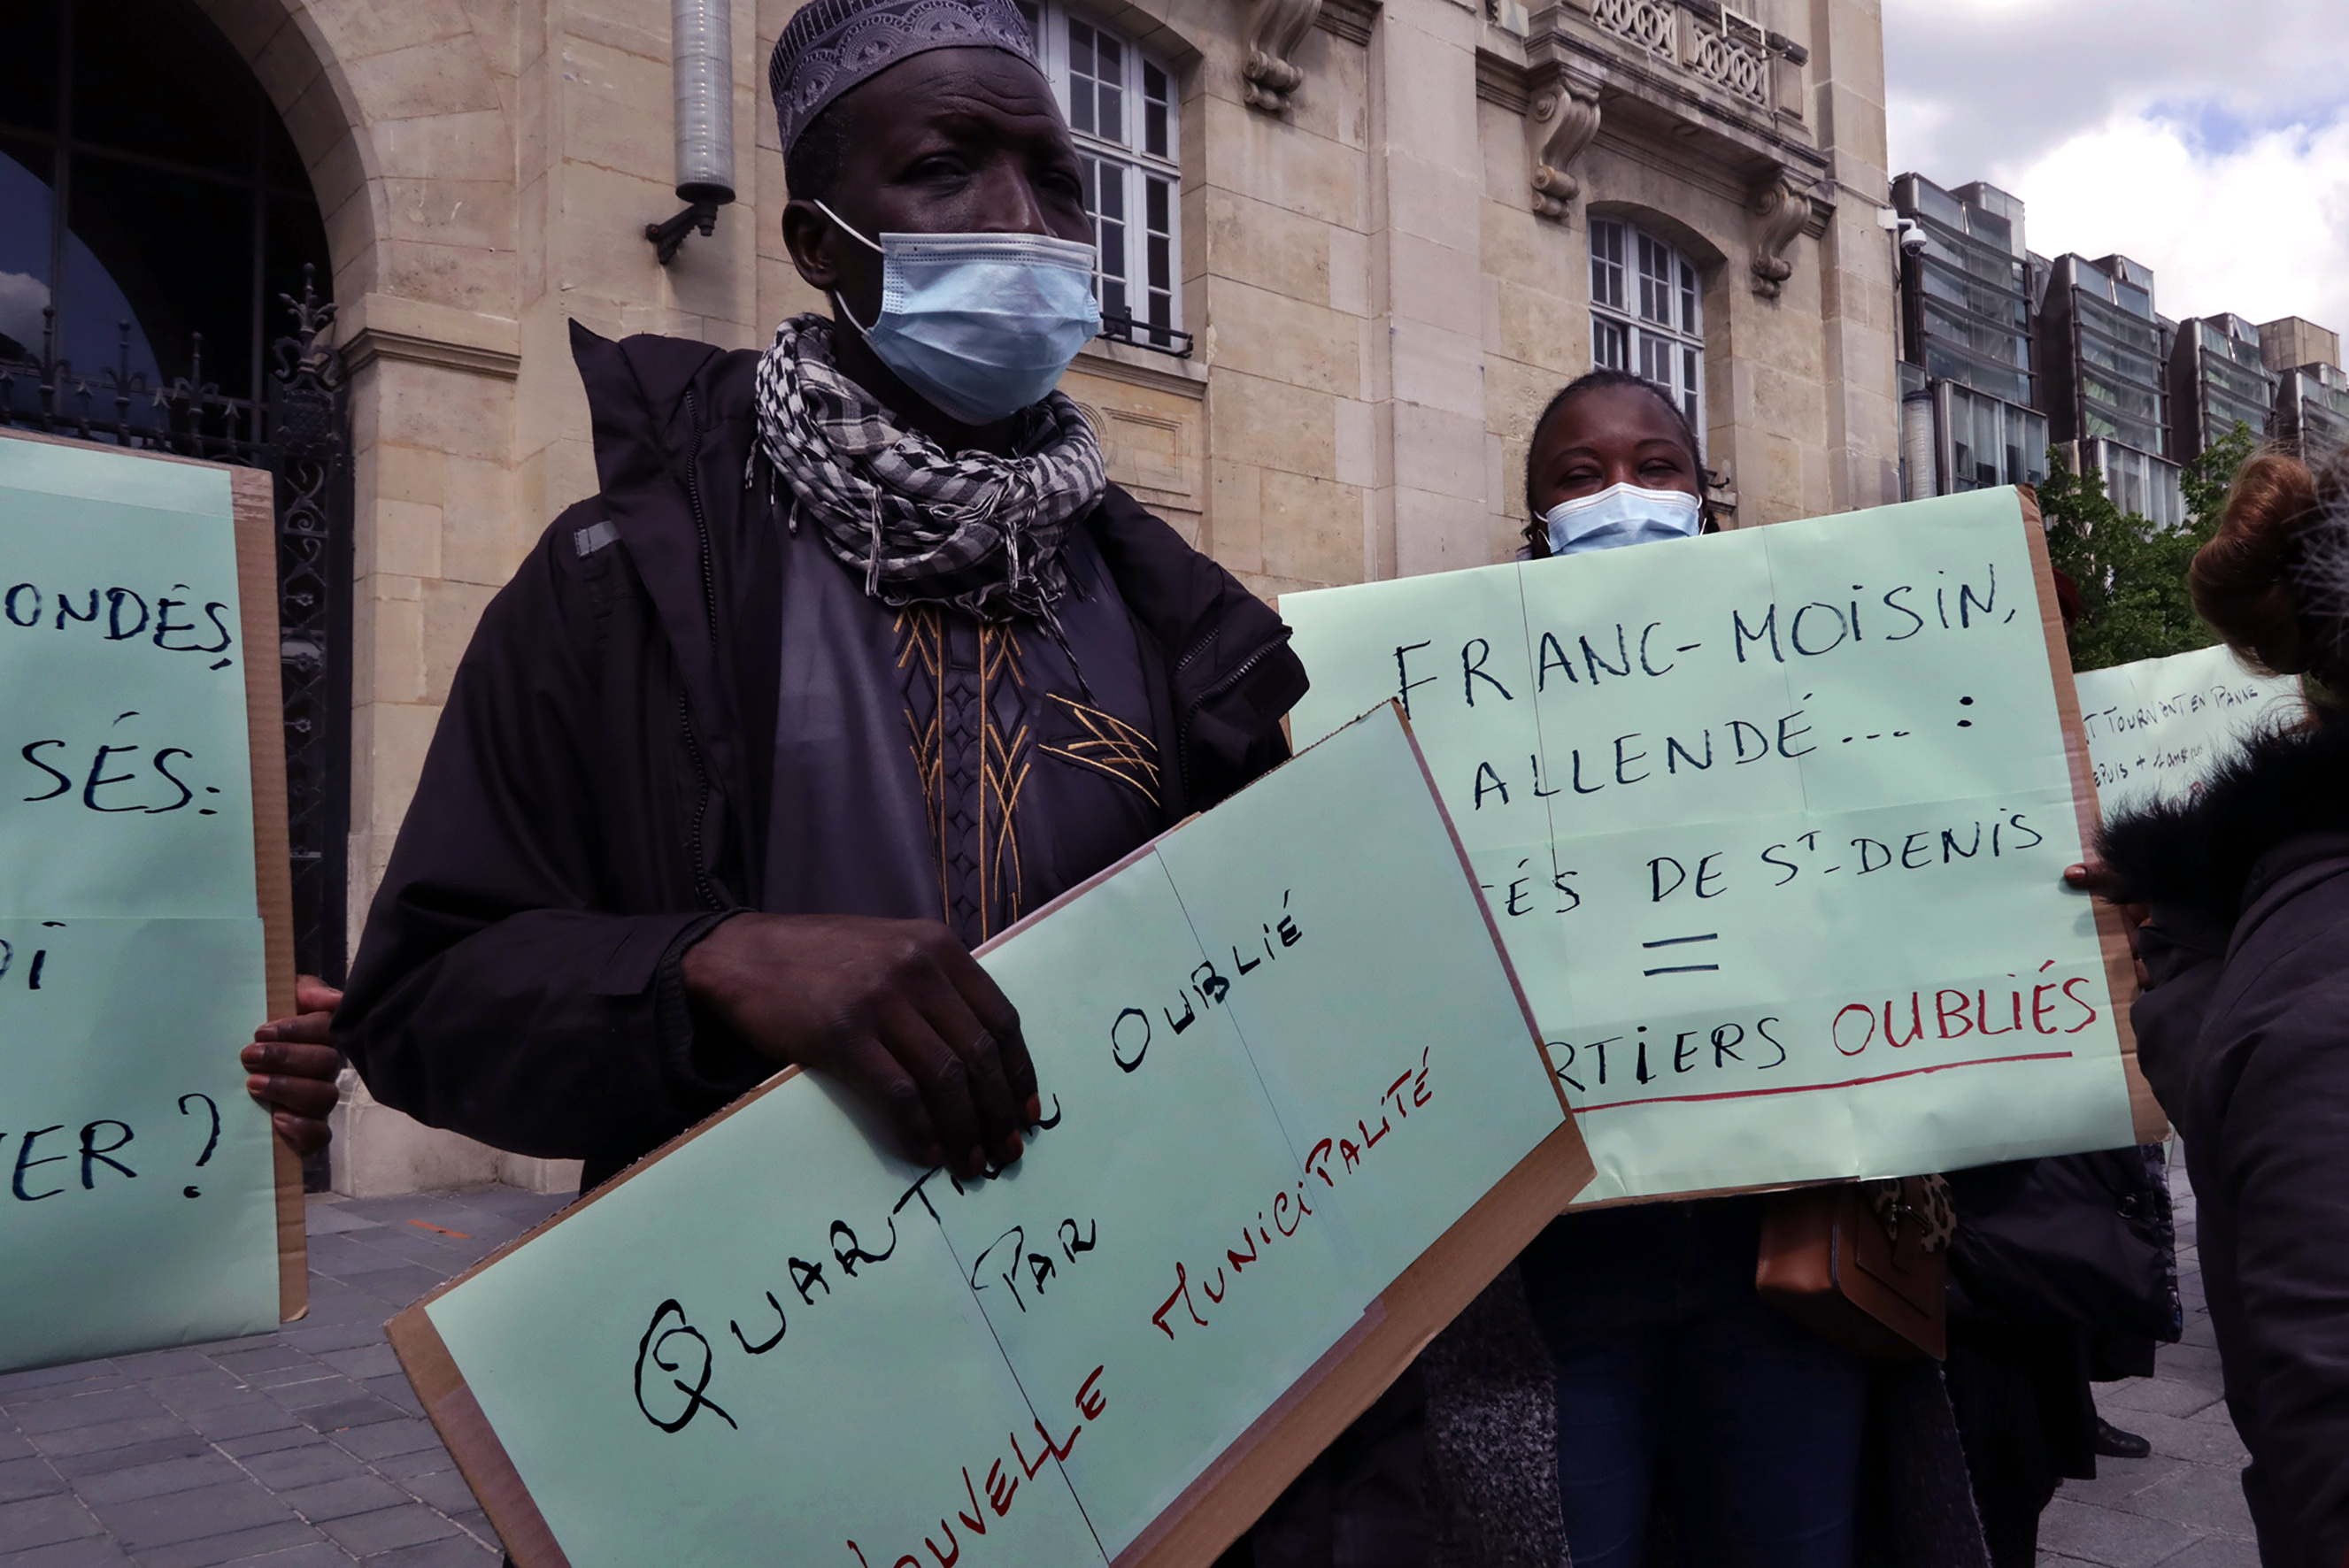 ONDÉS,
SÉS:
OI
ER ?
QUARTIER OUBLIÉ
PAR
NOUVELLE MUNICIPALITÉ
FRANC-MOISIN,
ALLENDÉ... :
ÉS DE ST-DENIS
=
RTIERS OUBLIÉS
T TOURNENT EN PANNE
EPUIS +